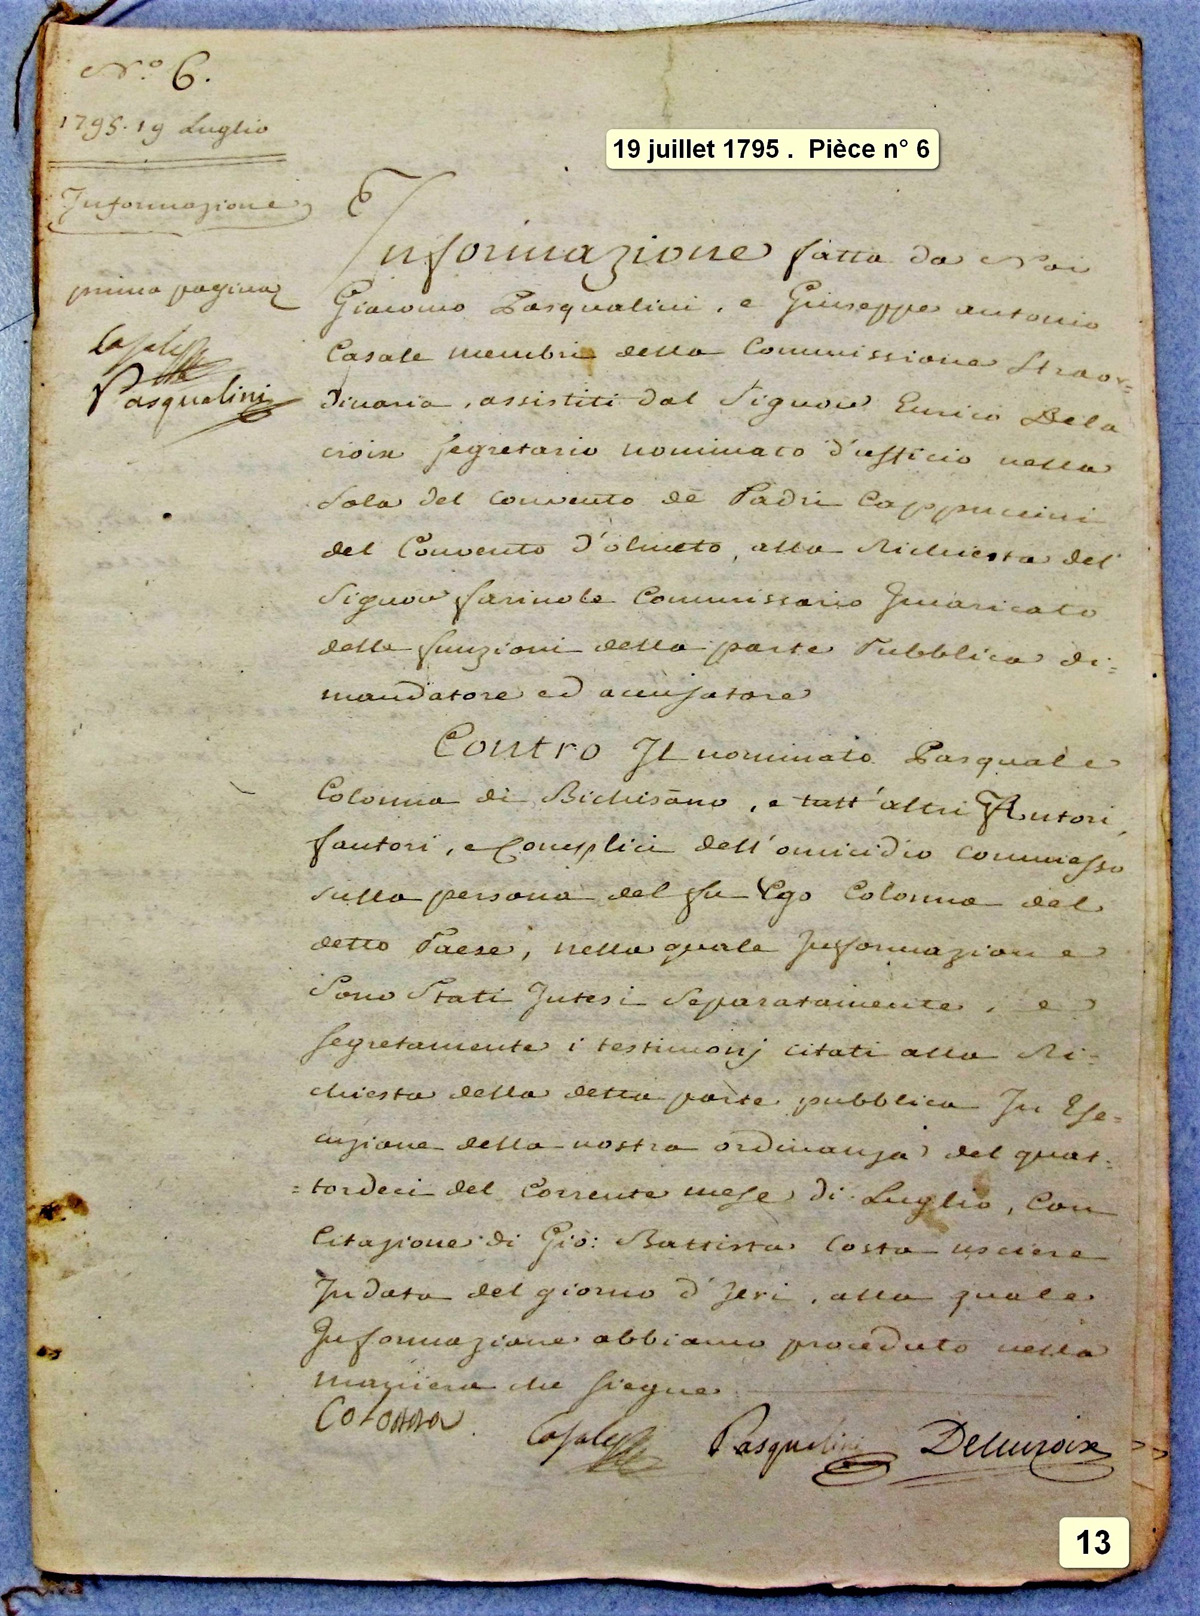 N.o 6.
1795. 19 Luglio
19 juillet 1795 . Pièce n° 6
Informazione
prima pagina
Casale
Pasqualini
Informazione fatta da Noi
Giacomo Pasqualini, e Giuseppe antonio
Casale membri della Commissione Straor=
dinaria, assistiti dal Signore Enrico Dela
croix segretario nominato d'ufficio nella
Sala del Convento de Padri Cappuccini
del Convento d'oliveto, alla Richiesta del
Signore farinole Commissario Incaricato
delle funzioni della parte Pubblica di=
mandatore ed accusatore
Contro Il nominato Pasquale
Colonna di Bichisano, e tutt'altri Autori,
fautori, e Complici dell'omicidio commesso
sulla persona del fu Ugo Colonna del
detto Paese, nella quale Informazione
Sono Stati Intesi Separatamente, e
segretamente i testimonj citati alla Ri=
chiesta della detta parte pubblica In Ese=
cuzione della nostra ordinanza del quat=
=tordeci del Corrente mese di Luglio, Con
Citazione di Gio: Battista Costa usciere
In data del giorno d'Jeri, alla quale
Informazione abbiamo proceduto nella
maniera che siegue
Colonna. Casale Pasqualini Delacroix
13